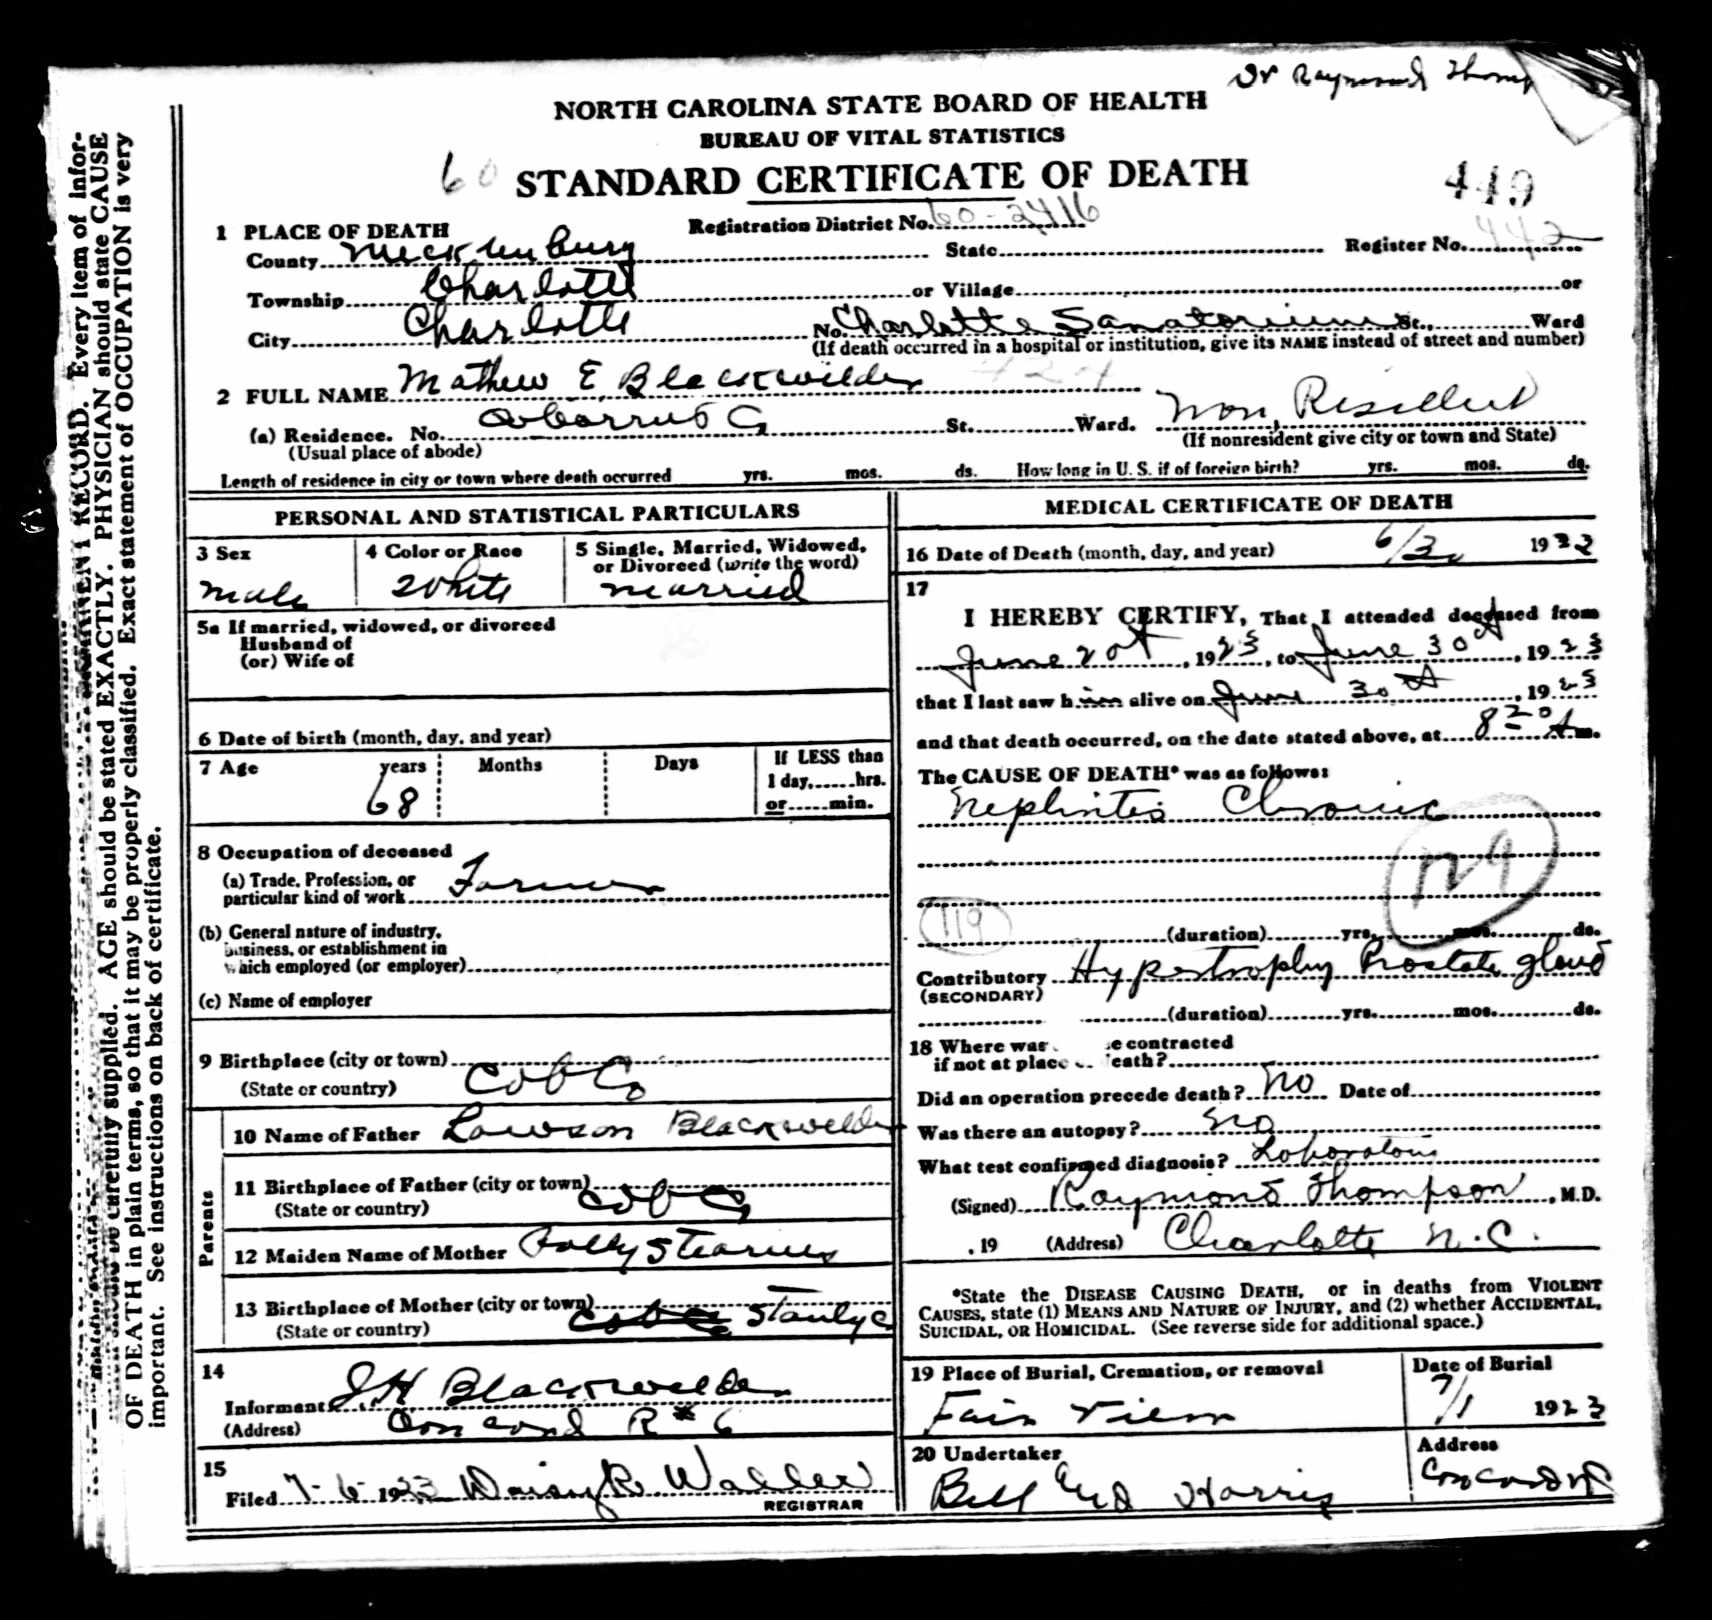 Dr Raymond Thomp
NORTH CAROLINA STATE BOARD OF HEALTH
BUREAU OF VITAL STATISTICS
60 STANDARD CERTIFICATE OF DEATH
449
1 PLACE OF DEATH Registration District No. 60-2416
County Mecklenburg State Register No. 442
Township Charlotte or Village or
City Charlotte No. Charlotte Sanatorium St., Ward
(If death occurred in a hospital or institution, give its NAME instead of street and number)
2 FULL NAME Mathew E Blackwelder
(a) Residence. No. Cabarrus Co St. Ward. Non Resident
(Usual place of abode) (If nonresident give city or town and State)
Length of residence in city or town where death occurred yrs. mos. ds. How long in U. S. if of foreign birth? yrs. mos. ds.
PERSONAL AND STATISTICAL PARTICULARS
3 Sex 4 Color or Race 5 Single, Married, Widowed,
or Divorced (write the word)
Male White Married
5a If married, widowed, or divorced
Husband of
(or) Wife of
6 Date of birth (month, day, and year)
7 Age years Months Days If LESS than
1 day,......hrs.
68 or......min.
8 Occupation of deceased
(a) Trade, Profession, or
particular kind of work Farmer
(b) General nature of industry,
business, or establishment in
which employed (or employer)
(c) Name of employer
9 Birthplace (city or town)
(State or country) Cab Co
Parents
10 Name of Father Lawson Blackwelder
11 Birthplace of Father (city or town)
(State or country) Cab Co
12 Maiden Name of Mother Polly Stearns
13 Birthplace of Mother (city or town)
(State or country) Cab Co Stanly Co
14
Informant J H Blackwelder
(Address) Concord R # 6
15
Filed 7-6-1923 Daisy R. Waller
REGISTRAR
MEDICAL CERTIFICATE OF DEATH
16 Date of Death (month, day, and year) 6/30 1923
17
I HEREBY CERTIFY, That I attended deceased from
June 20th, 1923, to June 30th, 1923
that I last saw him alive on June 30th, 1923
and that death occurred, on the date stated above, at 8 20 A m.
The CAUSE OF DEATH* was as follows:
Nephritis Chronic
129
119
(duration) yrs. mos. ds.
Contributory Hypertrophy Prostate gland
(SECONDARY)
(duration) yrs. mos. ds.
18 Where was e contracted
if not at place death?
Did an operation precede death? No Date of
Was there an autopsy? No
What test confirmed diagnosis? Laboratory
(Signed) Raymond Thompson, M.D.
, 19 (Address) Charlotte N.C.
*State the DISEASE CAUSING DEATH, or in deaths from VIOLENT
CAUSES, state (1) MEANS AND NATURE OF INJURY, and (2) whether ACCIDENTAL,
SUICIDAL, OR HOMICIDAL. (See reverse side for additional space.)
19 Place of Burial, Cremation, or removal Date of Burial
Fair View 7/1 1923
20 Undertaker Address
Bell and Harris Concord NC
RECORD. Every item of infor-
AGE should be stated EXACTLY. PHYSICIAN should state CAUSE
OF DEATH in plain terms, so that it may be properly classified. Exact statement of OCCUPATION is very
important. See instructions on back of certificate.